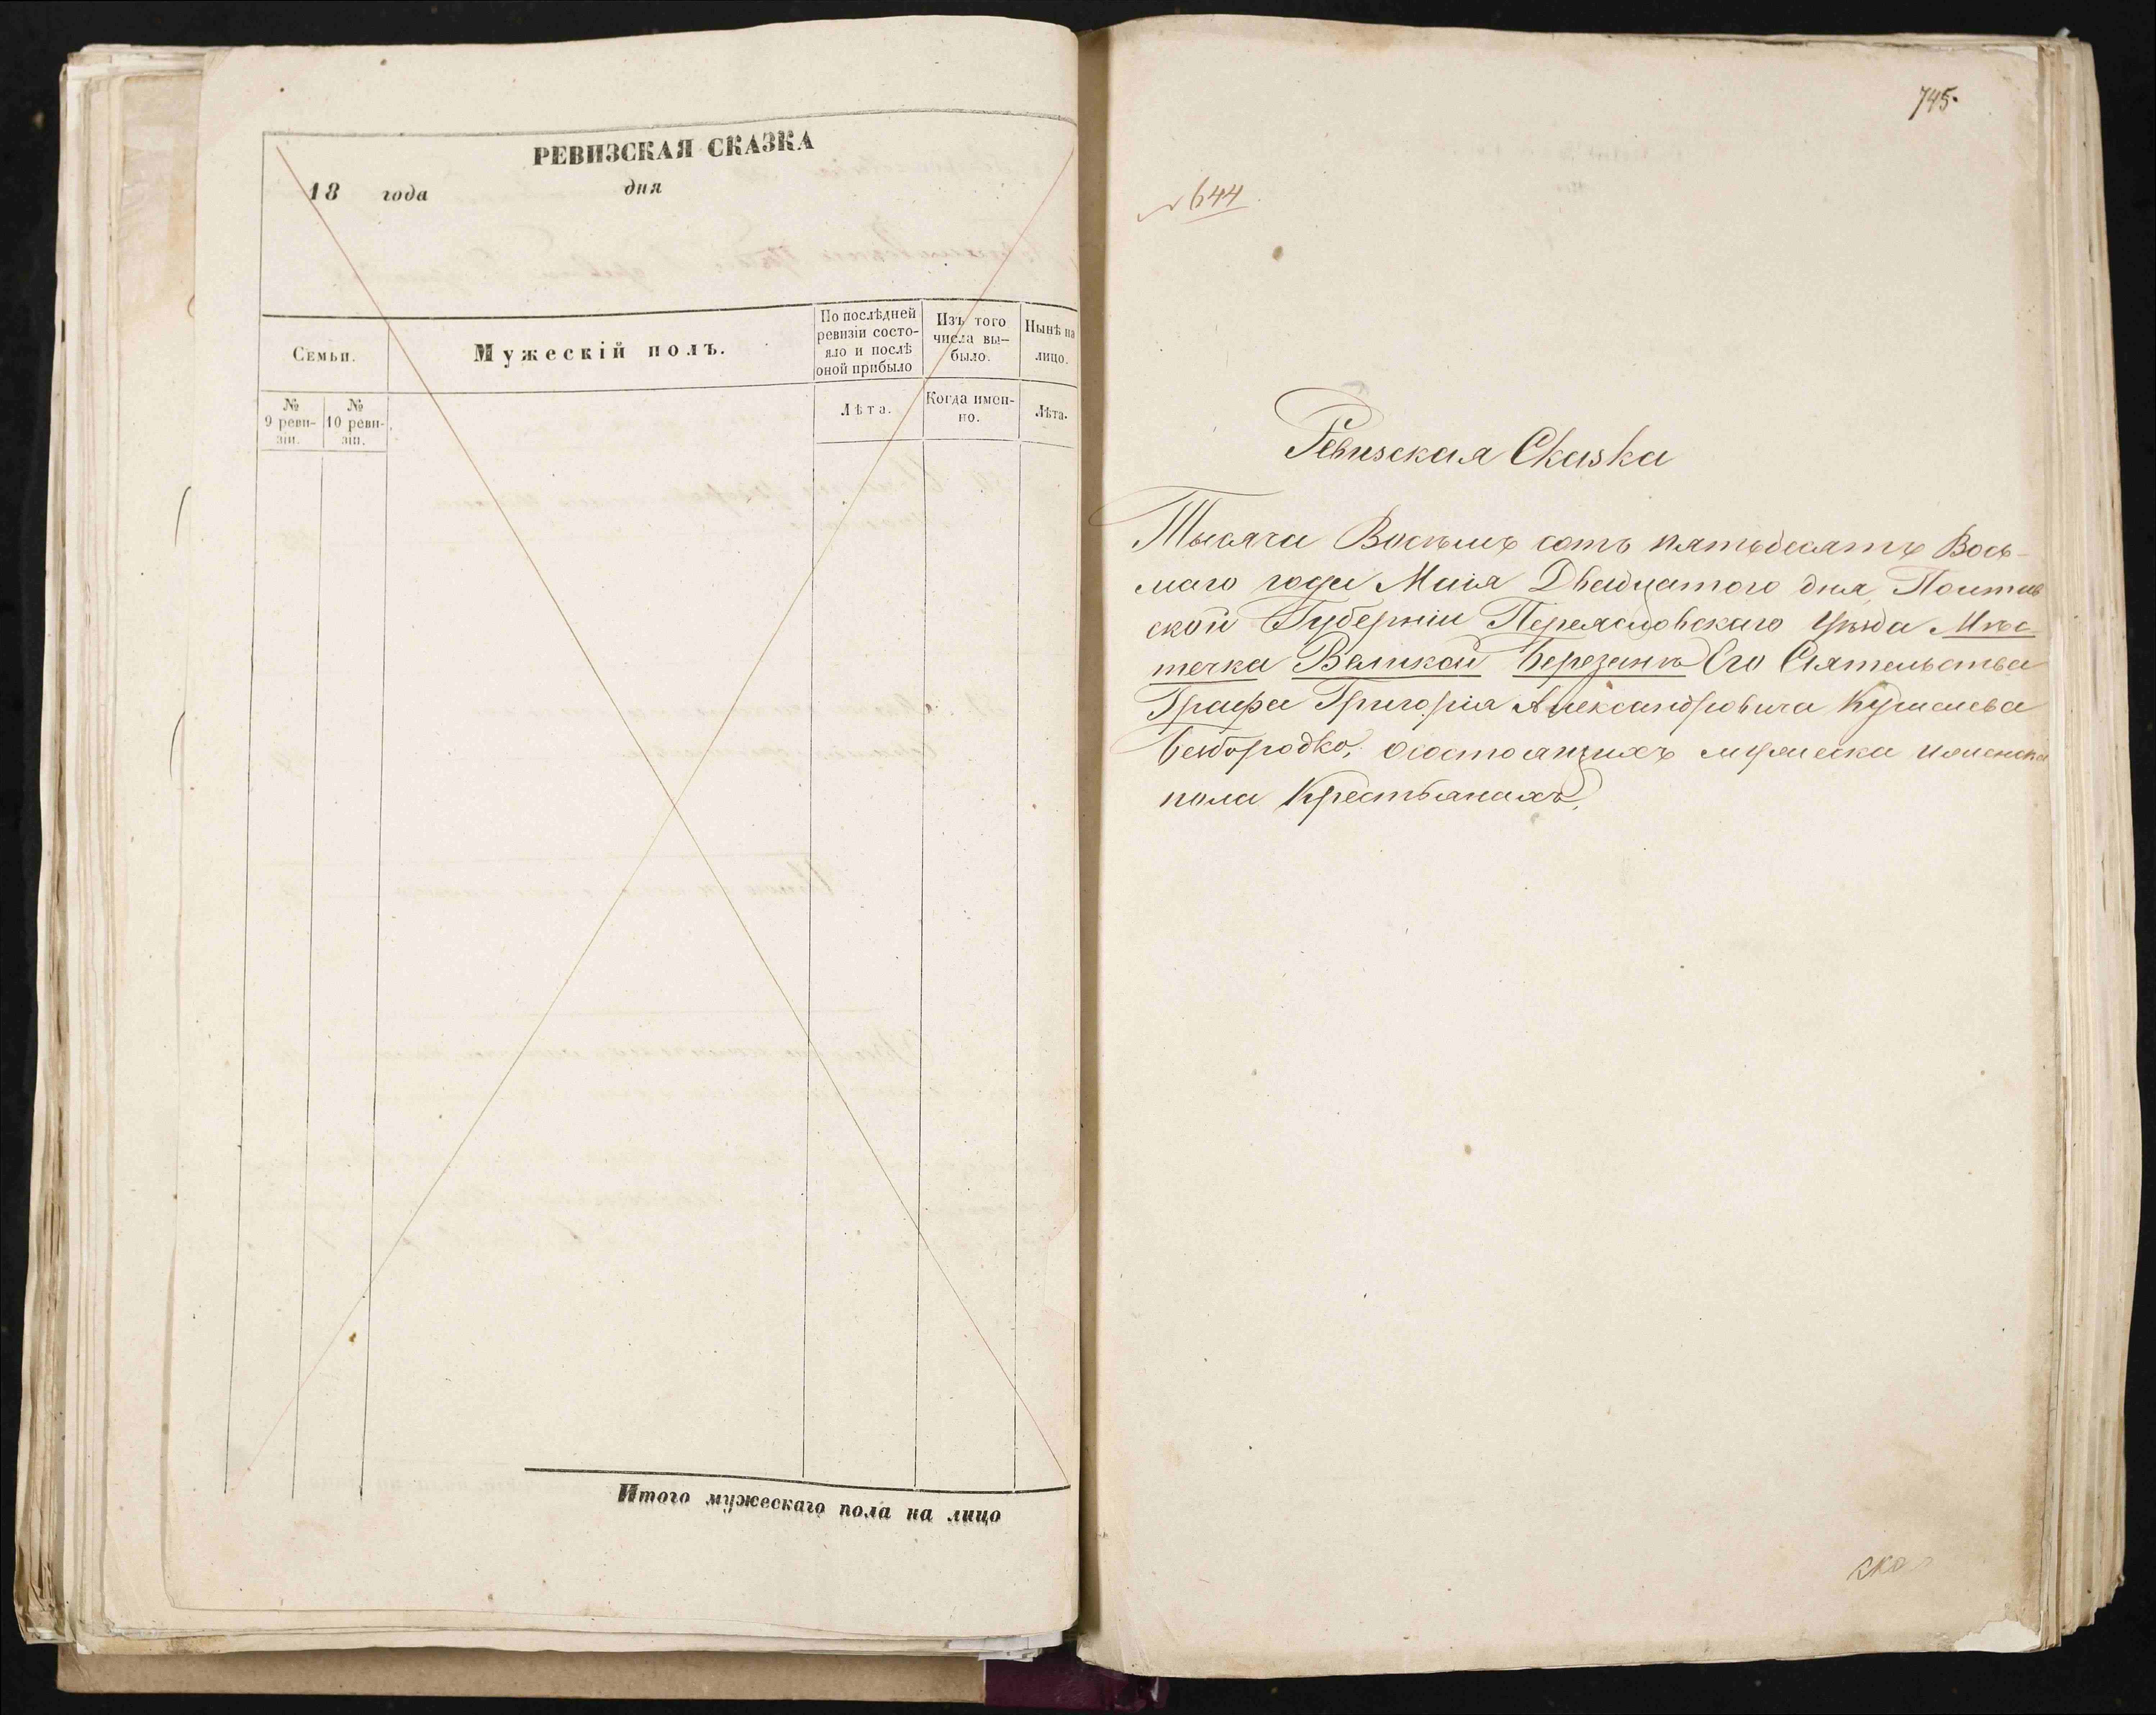 РЕВИЗСКАЯ СКАЗКА
18 года дня
Семьи.
Мужескій полъ.
По послѣдней
ревизіи состо-
яло и послѣ
оной прибыло
Изъ того
числа вы-
было.
Нынѣ на
лицо.
№
9 реви-
зіи.
№
10 реви-
зіи.
Лѣта.
Когда имен-
но.
Лѣта.
Итого мужескаго пола на лицо
745.
№ 644.
Ревизская Сказка
Тысяча Восемь сотъ пятьдесятъ Вось-
маго года Маія Двадцатого дня, Полтав
ской Губерніи Переясловскаго Уѣзда Мѣс
течка Великой Березанкѣ Его Сіятельства
Графа Григорія Александровича Кушелева
Безбородко, осостоящихъ мужеска иженска
пола Крестьянахъ.